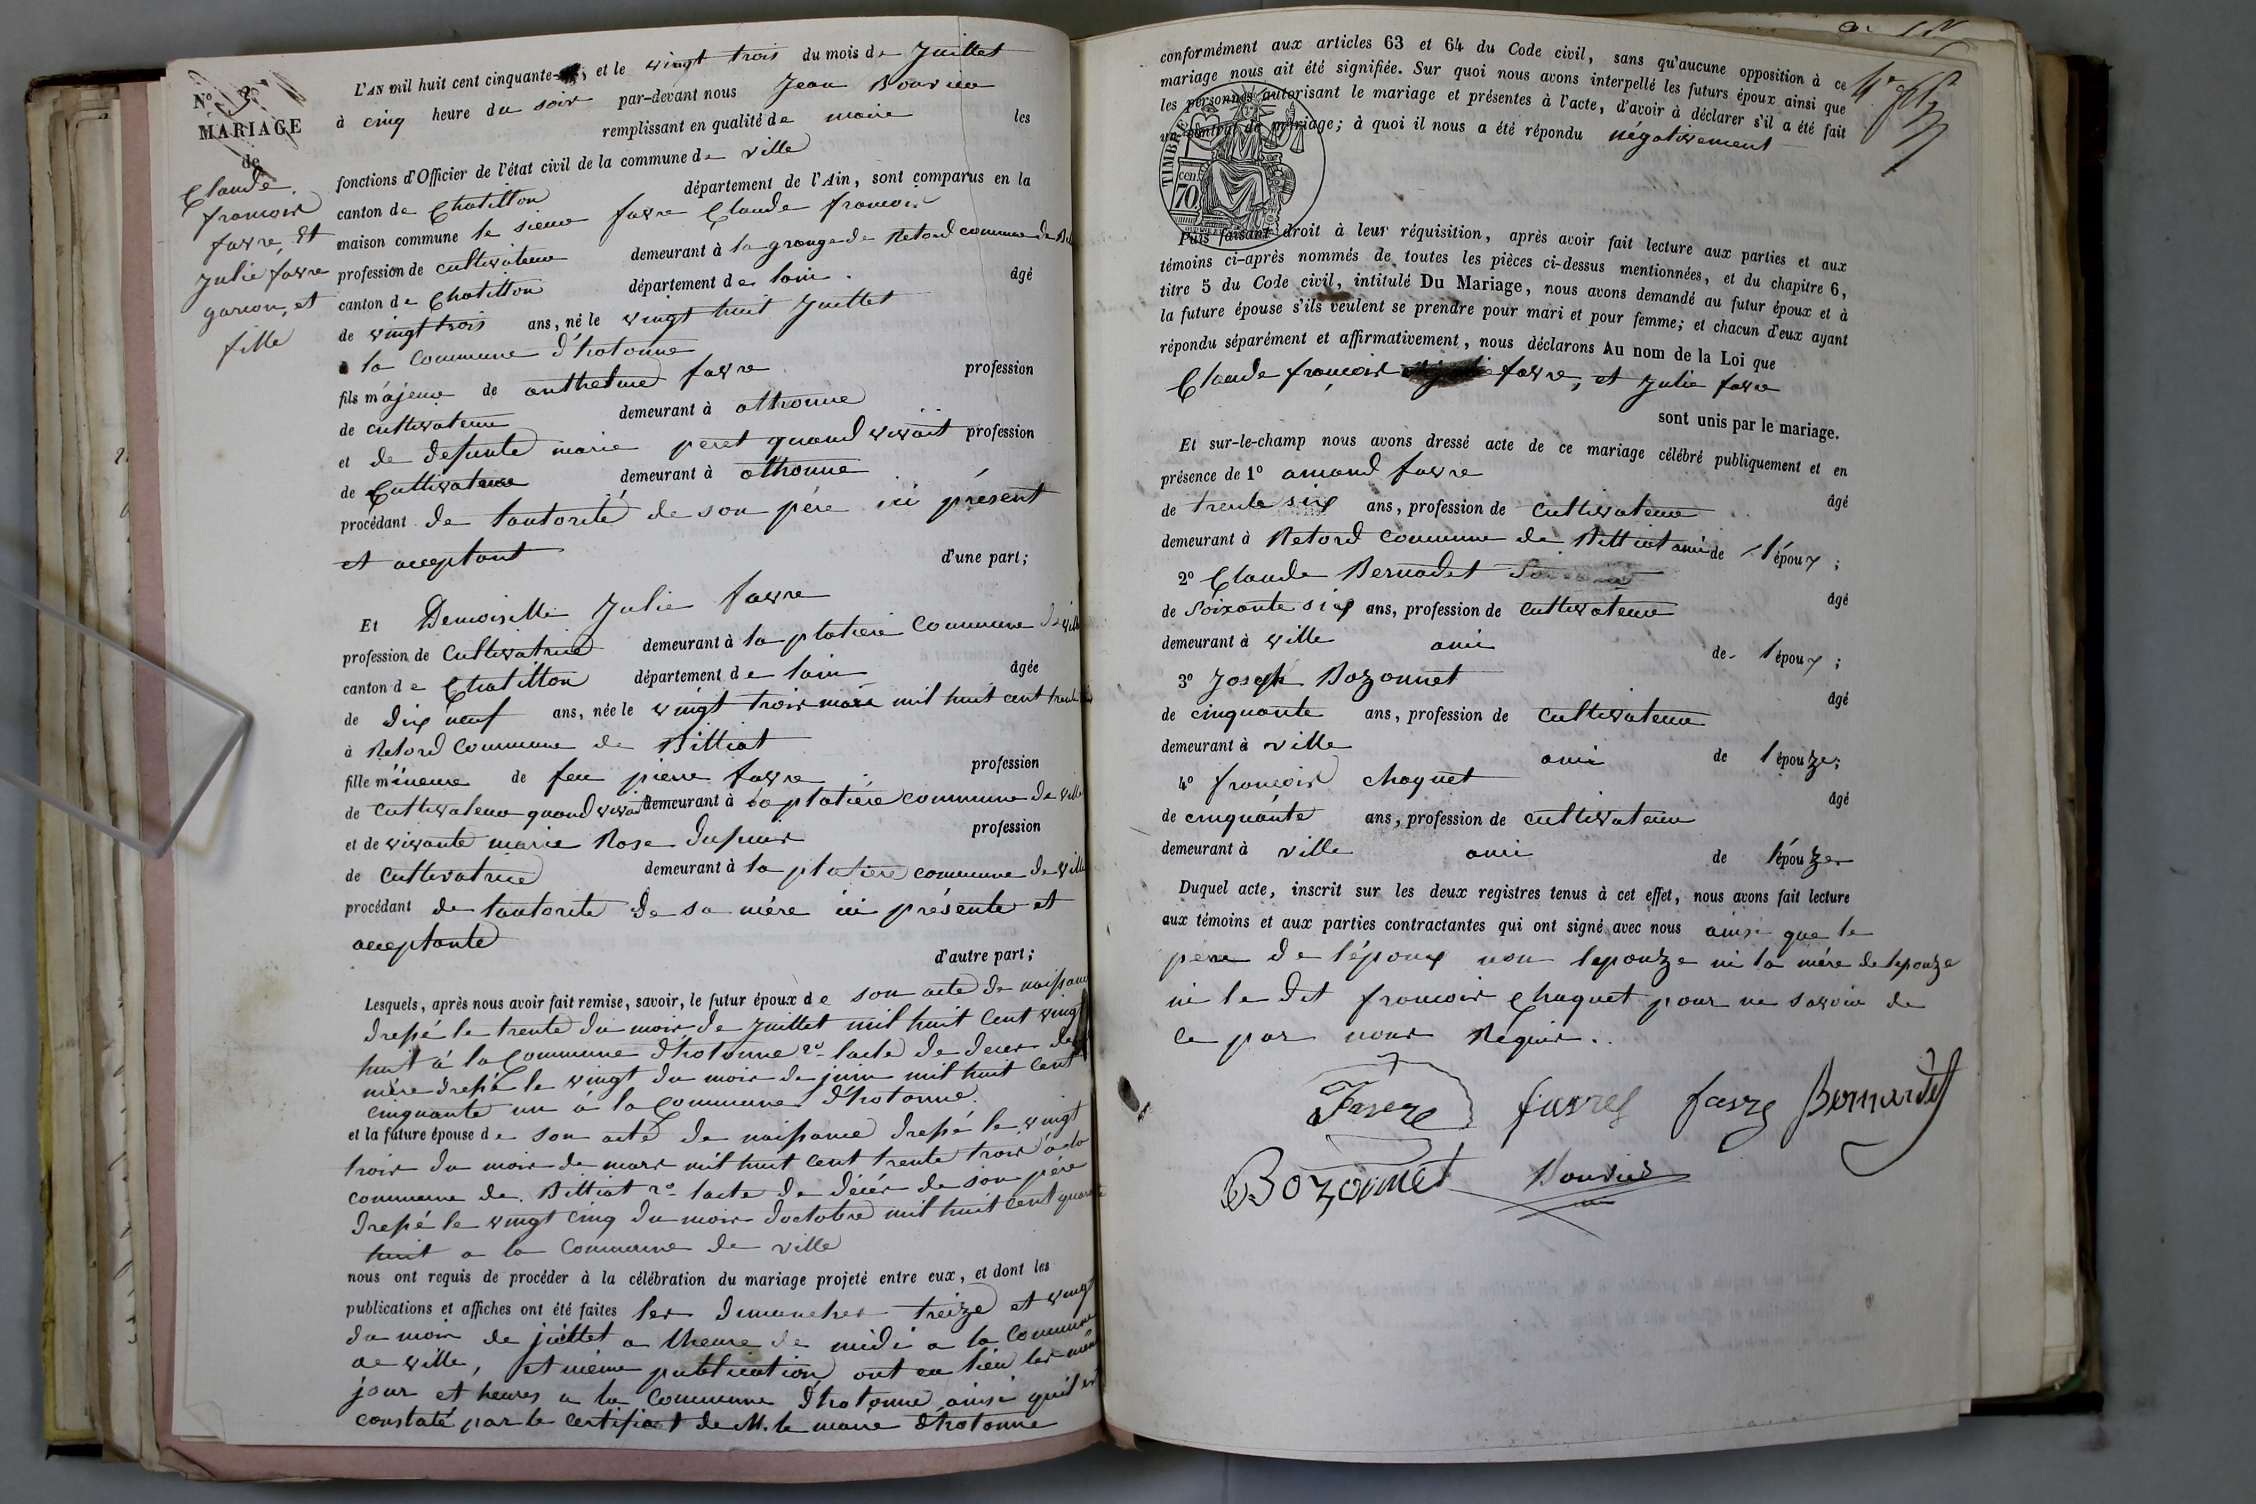 N°
MARIAGE
de
Claude
francois
favre, et
Julie favre
garcon, et
fille
L'AN mil huit cent cinquante- et le vingt trois du mois de Juillet
à cinq heure du soir par-devant nous Jean Bouvier
remplissant en qualité de maire les
fonctions d'Officier de l'état civil de la commune de ville
canton de Chatillon département de l'Ain, sont comparus en la
maison commune le sieur favre Claude francois
profession de cultivateur demeurant à la grange de Retord commune de
canton de Chatillon département de lain. âgé
de vingt trois ans, né le vingt huit Juillet
a la Commune d'hotonne
fils májeur de anthelme favre profession
de cultivateur demeurant à othonne
et de defunte marie peret quand vivait profession
de Cultivateur demeurant à othonne
procédant de lautorité de son père ici présent
et aceptant d'une part;
Et Demoiselle Julie favre
profession de Cultivatrice demeurant à la platiere Commune de ville
canton de Chatillon département de lain âgée
de dix neuf ans, née le vingt trois mars mil huit cent trente
à Retord Commune de Billiat
fille mineure de feu pierre favre profession
de Cultivateur quand vivait demeurant à la platière commune de ville
et de vivante marie Rose dufour profession
de Cultivatrice demeurant à la platiere commune de ville
procédant de lautorité de sa mére ici présente et
aceptante
d'autre part;
Lesquels, après nous avoir fait remise, savoir, le futur époux de son acte de naissance
dressé le trente du mois de Juillet mil huit Cent vingt
huit á la Commune d'hotonne 2° lacte de deces de
mére dressé le vingt du mois de juin mil huit Cent
cinquante un á la Commune d'hotonne.
et la future épouse de son acte de naissance dressé le vingt
trois du mois de mars mil huit Cent trente trois á la
commune de Billiat 2° lacte de décés de son pére
dressé le vingt cinq du mois doctobre mil huit Cent quarante
huit a la Commune de ville
nous ont requis de procéder à la célébration du mariage projeté entre eux, et dont les
publications et affiches ont été faites les dimanches treize et vingt
du mois de juillet a lheure de midi a la Commune
de ville, et méme publication ont eu lieu les même
jour et heures a la Commune d'hotonne ainsi quil est
constaté par le Certificat de M. le maire d'hotonne
conformément aux articles 63 et 64 du Code civil, sans qu'aucune opposition à ce
mariage nous ait été signifiée. Sur quoi nous avons interpellé les futurs époux ainsi que
les personnes autorisant le mariage et présentes à l'acte, d'avoir à déclarer s'il a été fait
un contrat de mariage; à quoi il nous a été répondu négativement
TIMBRE
cen.
70
Puis faisant droit à leur réquisition, après avoir fait lecture aux parties et aux
témoins ci-après nommés de toutes les pièces ci-dessus mentionnées, et du chapitre 6,
titre 5 du Code civil, intitulé Du Mariage, nous avons demandé au futur époux et à
la future épouse s'ils veulent se prendre pour mari et pour femme; et chacun d'eux ayant
répondu séparément et affirmativement, nous déclarons Au nom de la Loi que
Claude françois favre, et Julie favre
sont unis par le mariage.
Et sur-le-champ nous avons dressé acte de ce mariage célébré publiquement et en
présence de 1° amand favre
de trente six ans, profession de Cultivateur âgé
demeurant à Retord Commune de Billiat ami de l'époux;
2° Claude Bernadet
de Soixante six ans, profession de Cultivateur âgé
demeurant à ville ami de l'époux;
3° Joseph Bozonnet
de cinquante ans, profession de Cultivateur âgé
demeurant à ville ami de l'épouze;
4° francois chaquet
de cinquante ans, profession de Cultivateur âgé
demeurant à ville ami de l'épouze
Duquel acte, inscrit sur les deux registres tenus à cet effet, nous avons fait lecture
aux témoins et aux parties contractantes qui ont signé avec nous ainsi que le
pére de l'époux non lepouze ni la mére de lepouze
ni le dit francois Chaquet pour ne savoir de
ce par nous Réquis..
Favre favre favre Bernardet
Bozonnet Bouvier